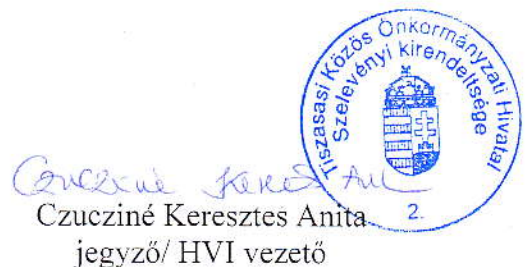 Tiszasasi Közös Önkormányzati Hivatal
Szelevényi kirendeltsége
2.
Czucziné Keresztes Anita
jegyző/ HVI vezető